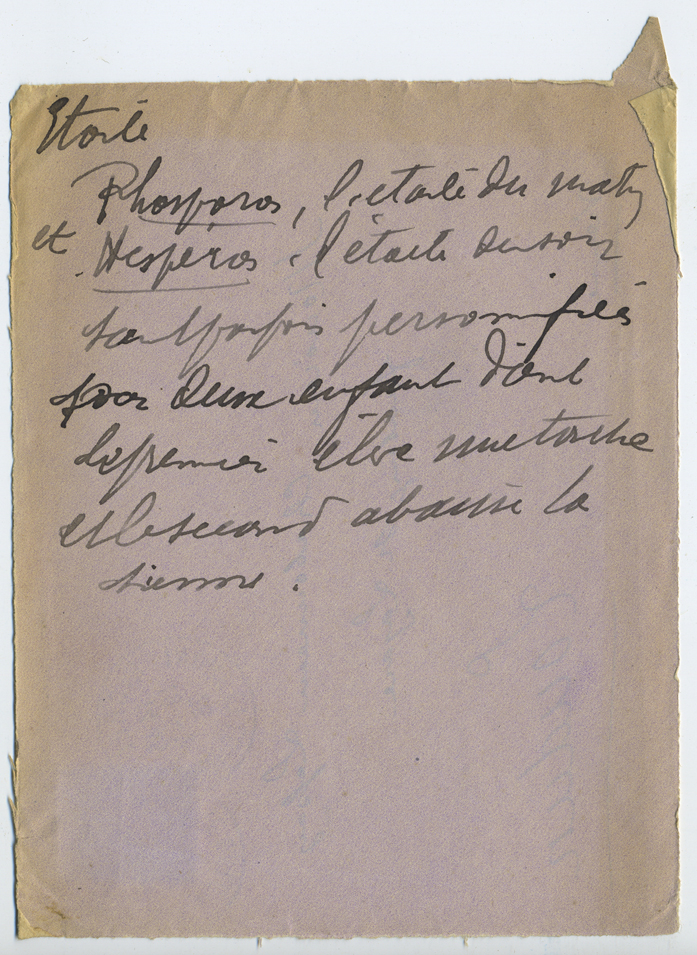 Etoile
Phosporos, l'etoile du matin
et Hespéros, l'étoile du soir
sont parfois personnifiés
par deux enfant dont
le premier élève une torche
et le second abaisse la
sienne.